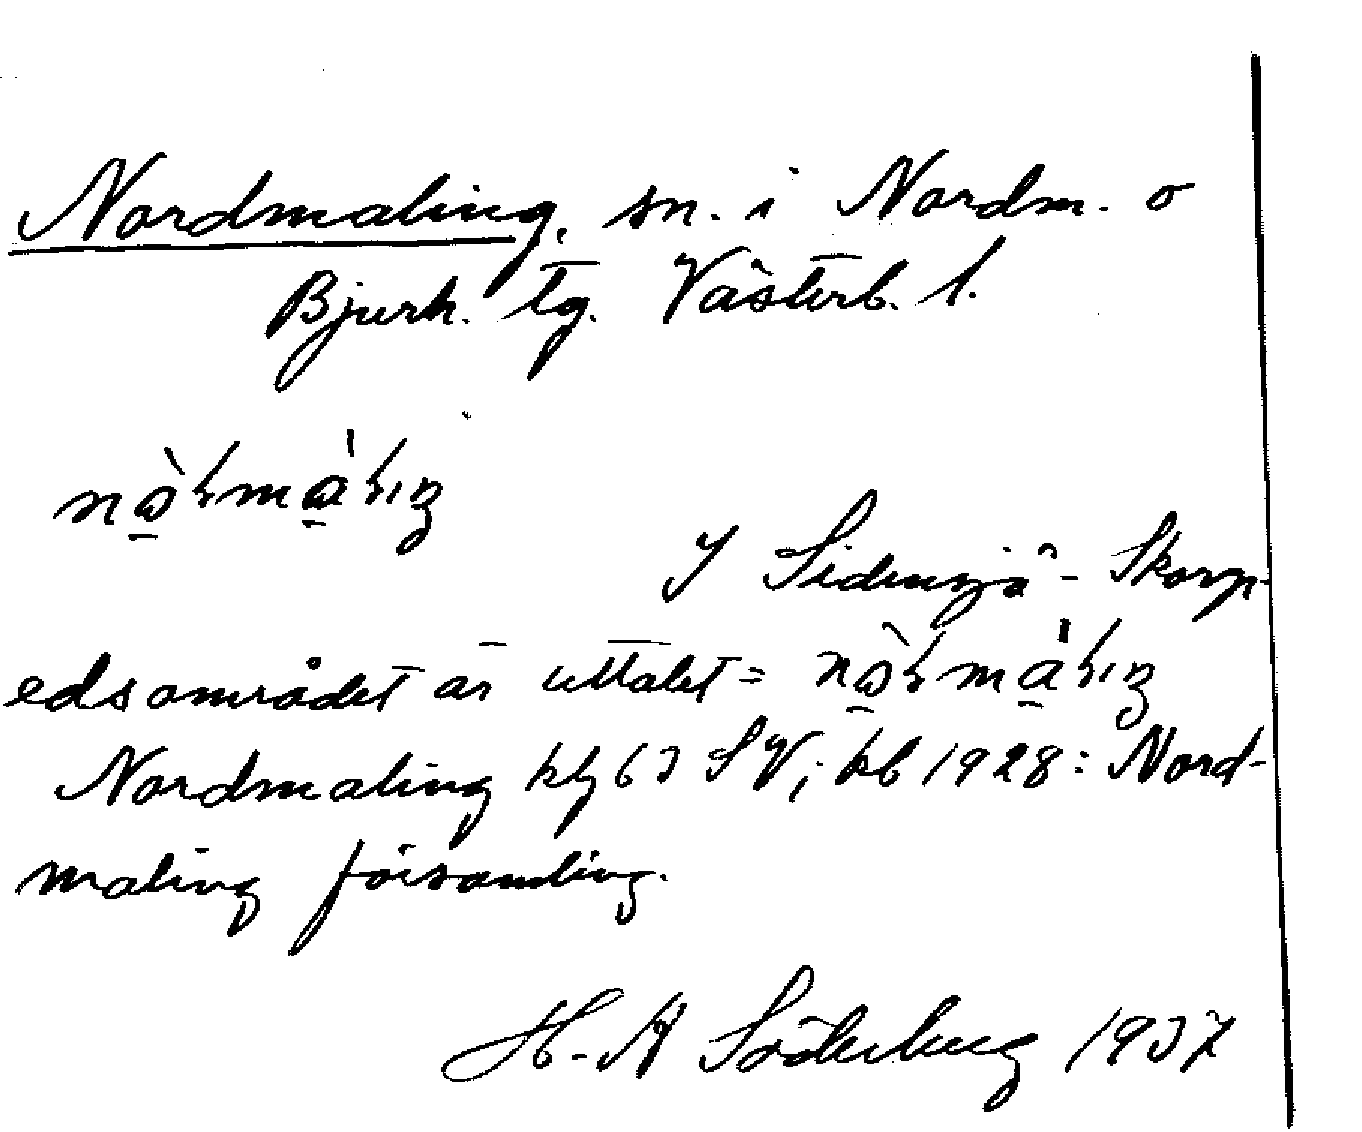 Nordmaling, sn. i Nordm. o
Bjurh. tg. Västerb. l.
I Sidensjö - Skorp-
edsområdet är uttalet =
Nordmaling kbg 63 SV; kb 1928: Nord-
maling församling.
H. A Söderberg 1937